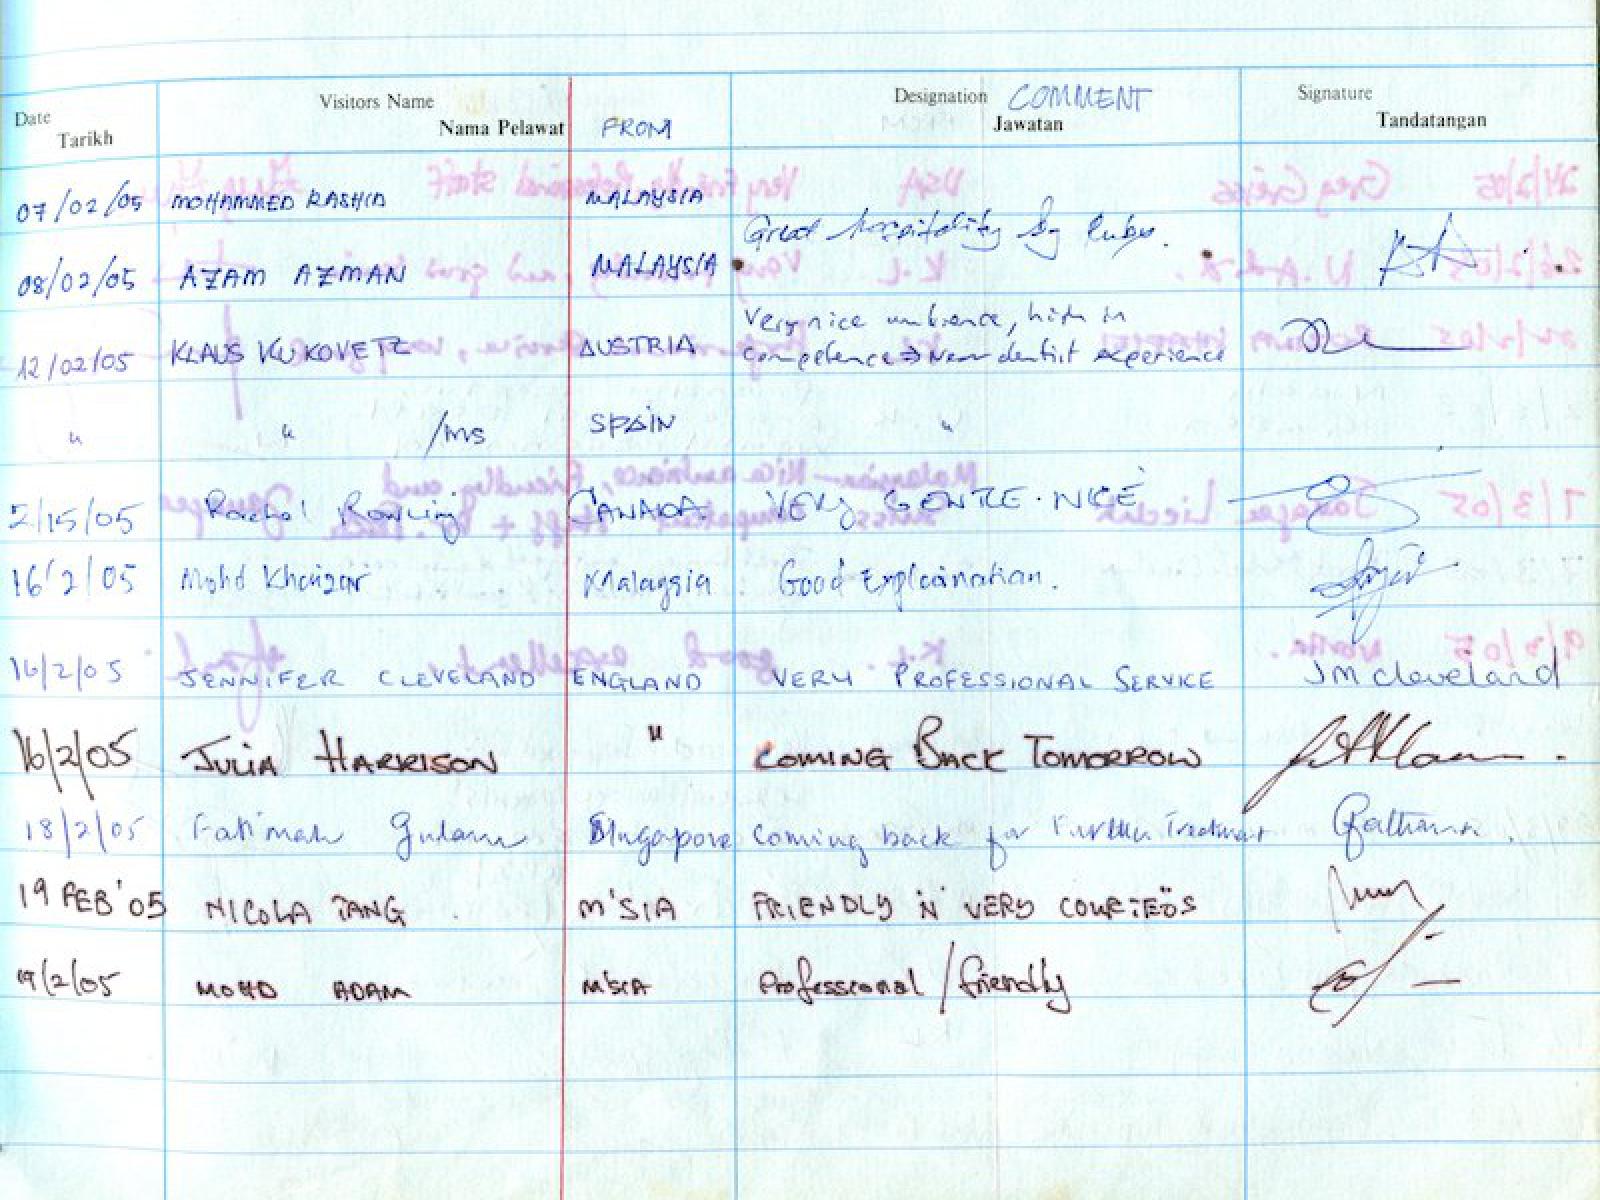 Date Tarikh Visitors Name Nama Pelawat FROM Designation Jawatan COMMENT Signature Tandatangan
07/02/05 MOHAMMED RASHID MALAYSIA
Great hospitality by
08/02/05 AZAM AZMAN MALAYSIA
Very nice ambience, high in
12/02/05 KLAUS KUKOVETZ AUSTRIA competence → New dentist experience
" " /ms SPAIN "
2/15/05 Rachel Rowling CANADA VERY GENTLE. NICE
16/2/05 Mohd Khaizar Malaysia Good Explaination.
16/2/05 JENNIFER CLEVELAND ENGLAND VERY PROFESSIONAL SERVICE JM Cleveland
16/2/05 JULIA HARRISON " COMING BACK TOMORROW
18/2/05 Fatimah Gulam Singapore Coming back for Further Treatment
19 FEB '05 NICOLA TANG M'SIA FRIENDLY N VERY
19/2/05 MOHD ADAM M'SIA Professional / friendly